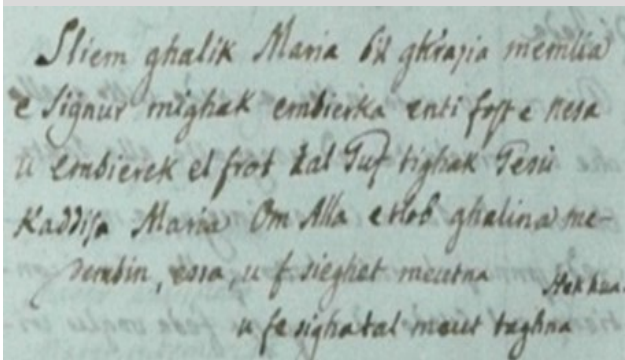 Sliem ghalik Maria bil gkrazia memlia
e Signur mighak embierka enti fost e nesa
u embierek el frot tal Guf tighak Gesù
Kaddisa Maria Om Alla etlob ghalina me-
denbin, essa, u f sieghet meutna Hekkua.
u fe sighatal meut taghna